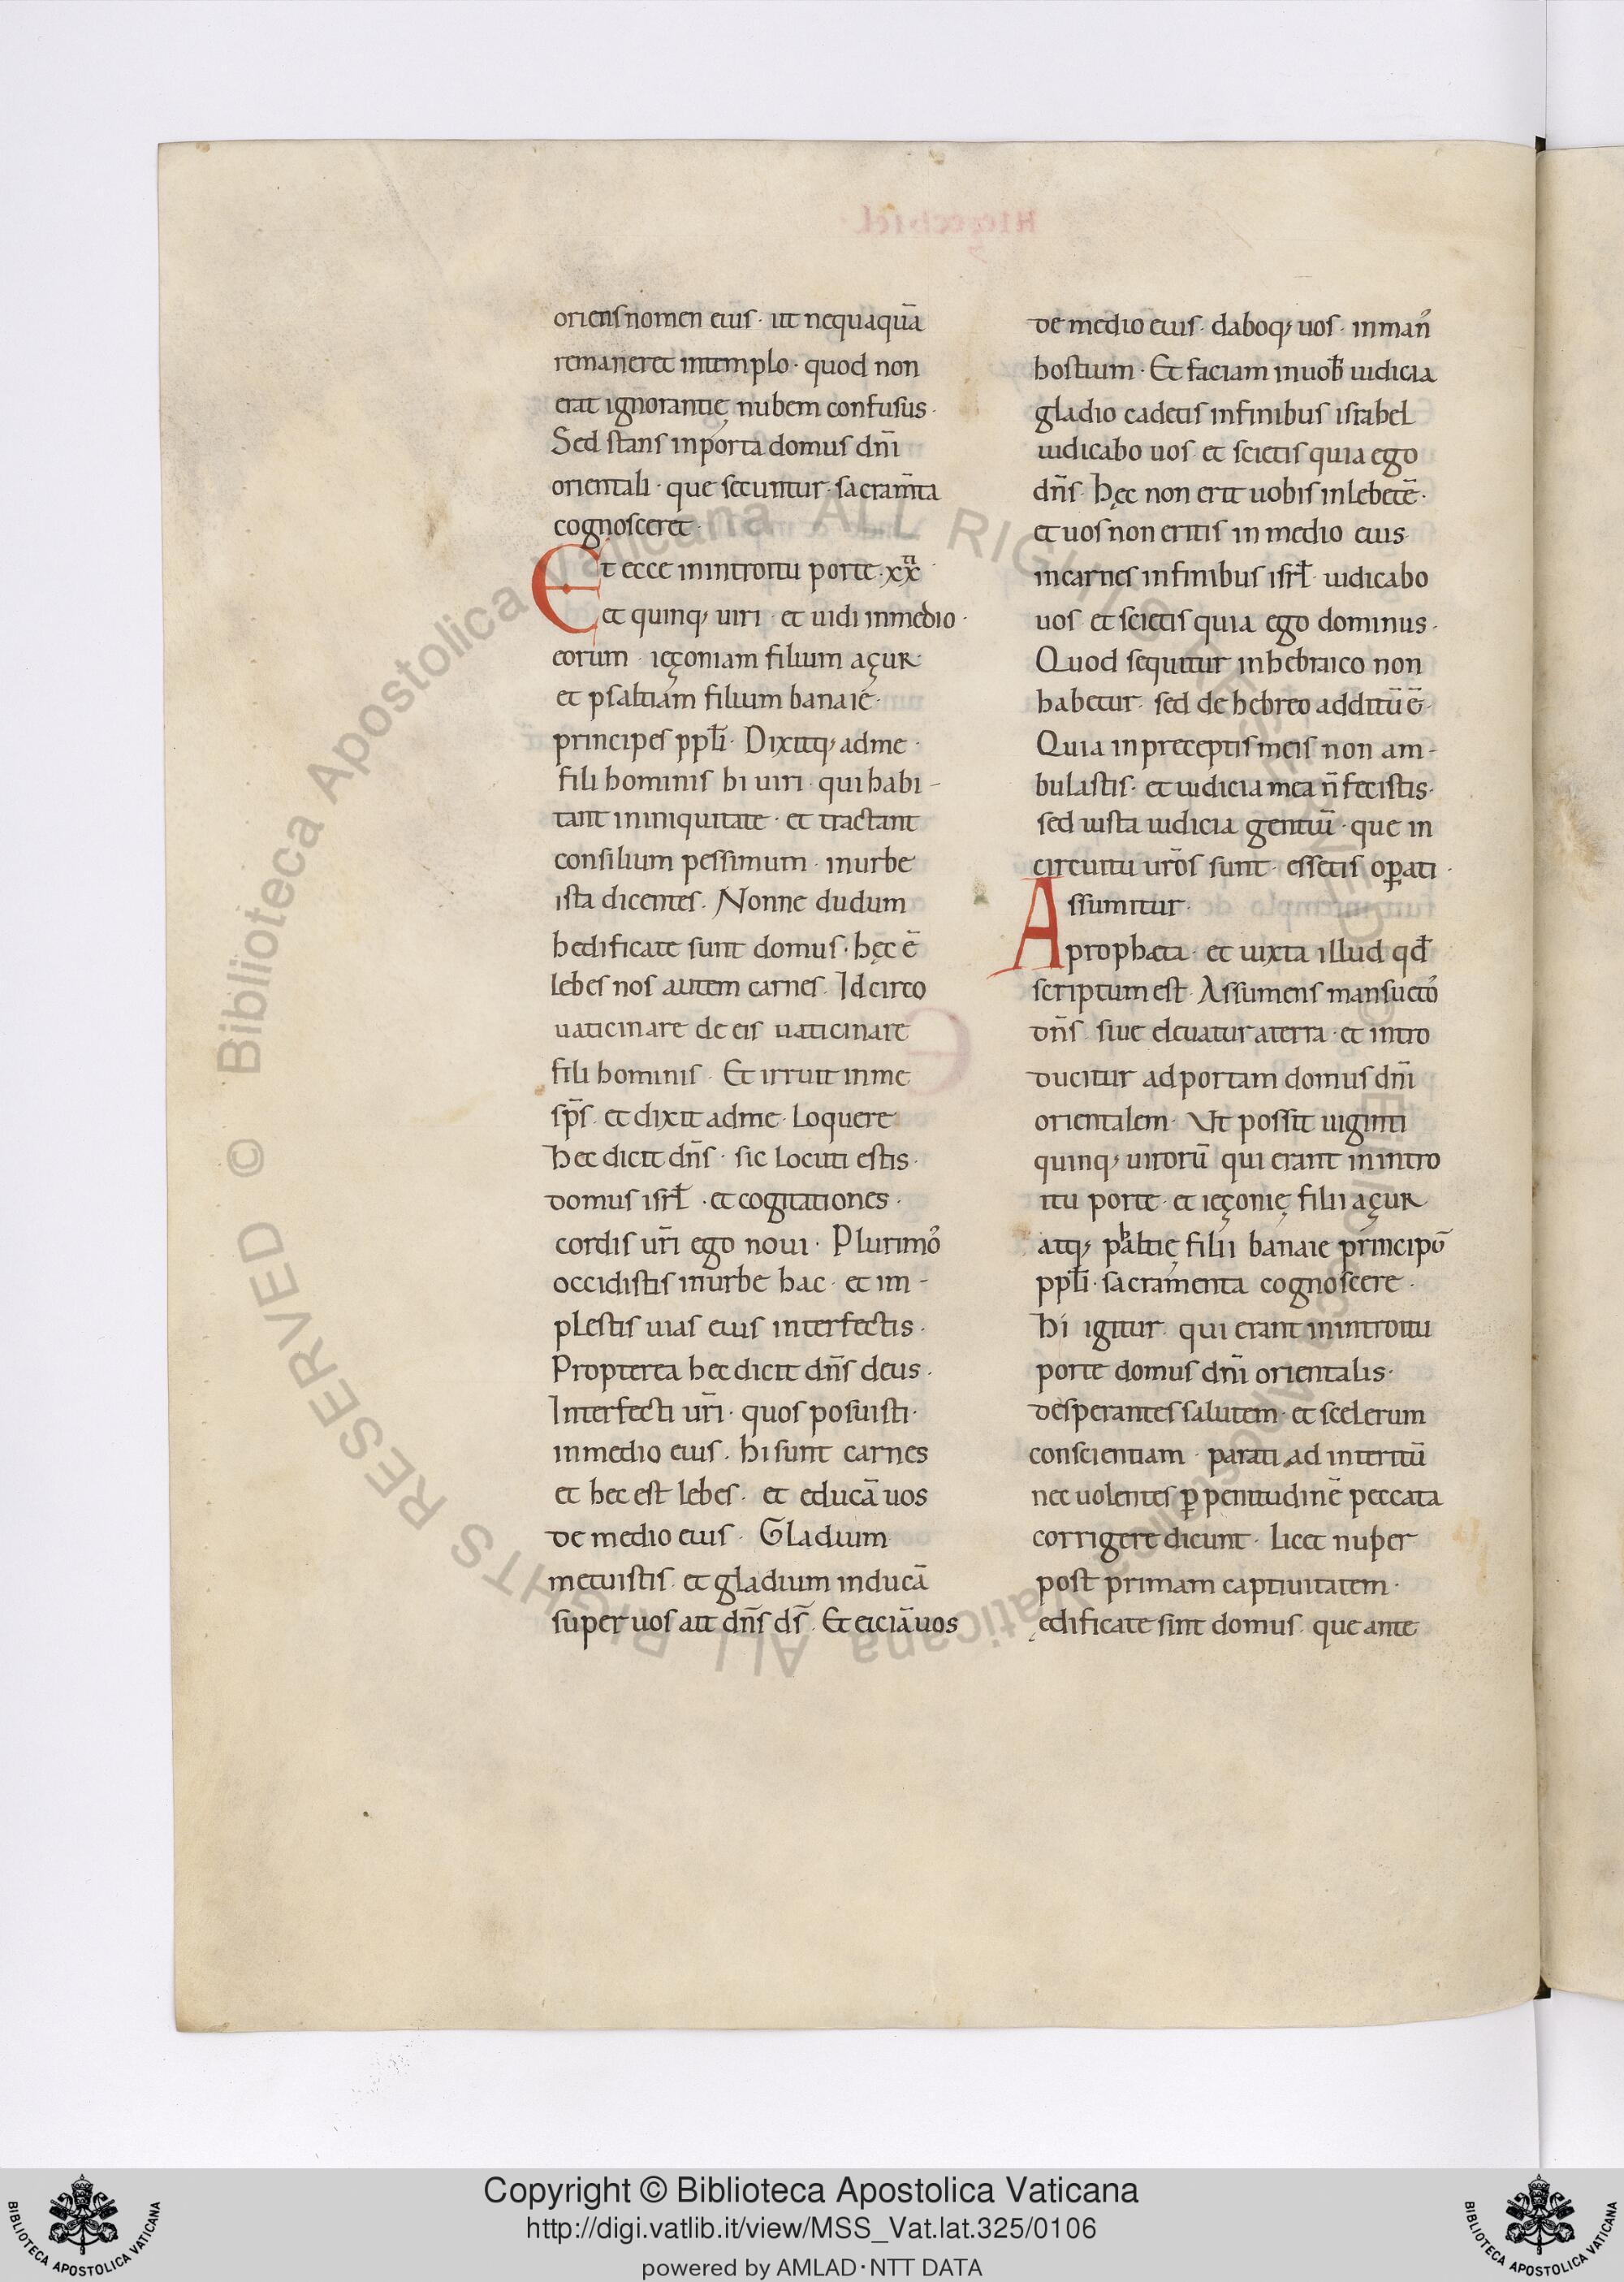 oriens nomen eius · ut nequaquā
remaneret intemplo · quod non
erat ignorantię nubem confusus ·
Sed stans inporta domus dn̄i
orientali · que secuntur · sacram̄ta
cognosceret ·
Et ecce inintroitu porte · xx͛
et quinq; uiri · et uidi inmedio ·
eorum · ieçoniam filium açur ·
et psaltiam filium banaie ·
principes ppl̄i · Dixitq; adme ·
fili hominis hi uiri · qui habi-
tant ininiquitate · et tractant
consilium pessimum · inurbe
ista dicentes · Nonne dudum
hedificate sunt domus · hęc ē
lebes nos autem carnes · Idcirco
uaticinare de eis uaticinare
fili hominis · Et irruit inme
sp̄s · et dixit adme · Loquere
hec dicit dn̄s · sic locuti estis ·
domus isrł · et cogitationes ·
cordis ur̄i ego noui · Plurimo᷒
occidistis inurbe hac · et im-
plestis uias eius interfectis ·
Propterea hec dicit dn̄s deus ·
Interfecti ur̄i · quos posuisti ·
inmedio eius · hi sunt carnes
et hec est lebes · et educā uos
de medio eius · Gladium
metuistis · et gladium inducā
super uos ait dn̄s ds̄ · Et eiciā uos
de medio eius · daboq; uos · inman᷒
hostium · Et faciam inuob̄ iudicia
gladio cadetis infinibus israhel
iudicabo uos · et scietis quia ego
dn̄s · hęc non erit uobis inlebetē ·
et uos non eritis in medio eius
incarnes infinibus isrł · iudicabo
uos et scietis quia ego dominus ·
Quod sequitur inhebraico non
habetur · sed de hebreo additū ē ·
Quia inpreceptis meis non am-
bulastis · et iudicia mea n̄ fecistis ·
sed iusta iudicia gentiū · que in
circuitu ur̄os sunt · essetis op̲ati ·
Assumitur ·
apropheta · et iuxta illud qd̄
scriptum est · Assumens mansueto᷒
dn̄s · siue eleuatur aterra · et intro
ducitur adportam domus dn̄i
orientalem · Ut possit uiginti
quinq; uirorū qui erant inintro
itu porte · et ieçonię filii açur
atq; phaltię filii banaie principū
ppl̄i · sacramenta cognoscere ·
hi igitur · qui erant inintroitu
porte domus dn̄i orientalis ·
desperantes salutem · et scelerum
conscientiam · parati ad interitū
nec uolentes p̲ penitudinē peccata
corrigere dicunt · licet nuper
post primam captiuitatem ·
ędificate sint domus · que ante
Copyright © Biblioteca Apostolica Vaticana
http://digi.vatlib.it/view/MSS_Vat.lat.325/0106
powered by AMLAD·NTT DATA